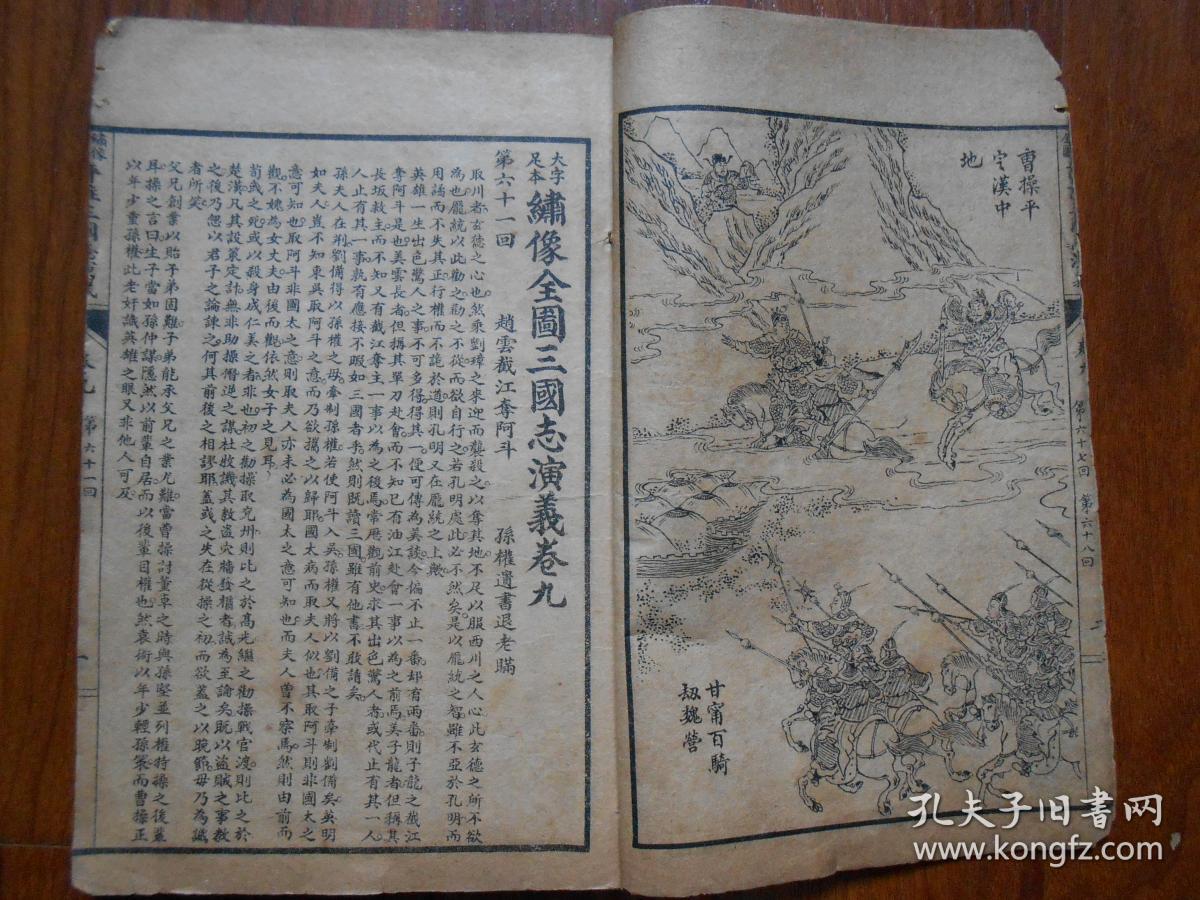 曹操平
定漢中
地
甘甯百騎
刼魏營
第六十七回 第六十八回
大字
足本
繡像全圖三國志演義卷九
第六十一回 趙雲截江奪阿斗 孫權遺書退老瞞
取川者玄德之心也然乘劉璋之來迎而襲殺之以奪其地不足以服西川之人心此玄德之所不欲
為也龐統以此勸之勸之不從而欲自行之若孔明處此必不然矣是以龐統之智雖不亞於孔明而
用譎而不失其正行權而不詭於道則孔明又在龐統之上歟
英雄一生出色驚人之事不可多得得其一便可傳為美談今偏不止一番却有兩番則子龍之截江
奪阿斗是也美雲長者但稱其單刀赴會而不知已有油江赴會一事以為之前焉美子龍者但稱其
長坂救主而不知又有截江奪主一事以為之後焉常歷觀前史求其出色驚人者或代止有其一人
人止有其一事孰有應接不暇如三國者乎然則既讀三國雖有他書不敢請矣
孫夫人在荆劉備得以孫權之母牽制孫權若使阿斗入吳孫權又將以劉備之子牽制劉備矣英明
如夫人豈不知東吳取阿斗之意而乃欲攜之以歸耶國太病而取夫人似也其取阿斗則非國太之
意可知也取阿斗非國太之意則取夫人亦未必為國太之意可知也而夫人曾不察焉然則由前而
觀不媿為女丈夫由後而觀依然女子之見耳
荀彧之死或以殺身成仁美之者非也初之勸操取兗州則比之於高光繼之勸操戰官渡則比之於
楚漢凡其設策定計無非助操僭逆之謀杜牧譏其教盜穴牆發櫃者誠為至論矣既以盜賊之事教
之後乃忽以君子之論諫之何其前後之相謬耶蓋彧之失在從操之初而欲蓋之以晚節毋乃為識
者所笑
父兄創業以貽子弟固難子弟能承父兄之業尤難當曹操討董卓之時與孫堅並列權特操之後輩
耳操之言曰生子當如孫仲謀隱然以前輩自居而以後輩目權也然袁術以年少輕孫策而曹操正
以年少重孫權此老奸識英雄之眼又非他人可及
第六十一回
孔夫子旧书网
www.kongfz.com